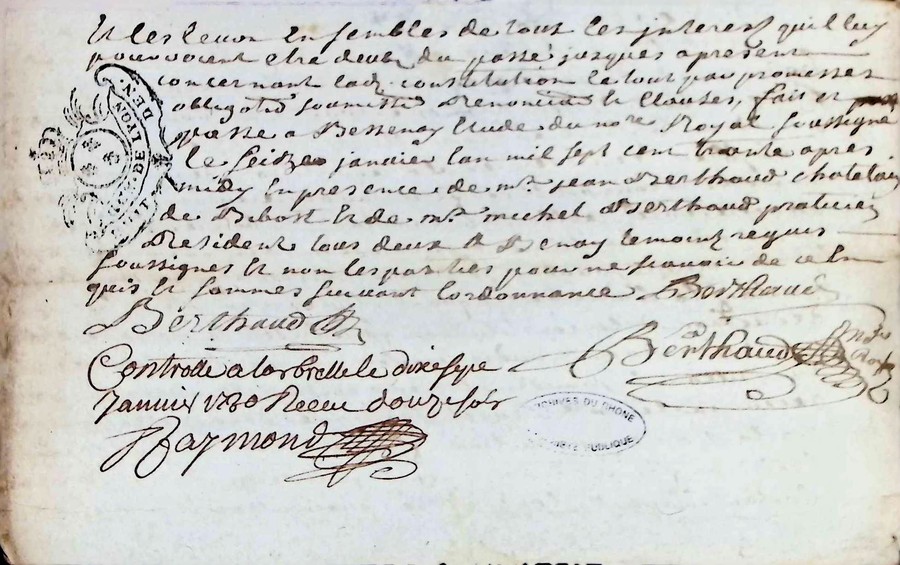 Et les leuon Ensembles de tout les jnterest quil luy
pouvoient etre deubz du passé jusques apresent
concernant lad. constitution le tout par promesses
obligaōns soumissōns Renonciaōns et Clauses, fait et
passé a Bessenay Etude du nore Royal soussigné
le seize janvier lan mil sept cent trante apres
midy En presence de mr. jean Berthaud chatelain
de Ribost Et de mr. michel Berthaud praticien
Resident tous deux a Besenay temoint requis
soussignes Et non les parties pour ne scavoir de ce En
quis Et sommes suivant lordonnance Berthaud
Berthaud
Berthaud Nore Royal
Controllé a larbrelle le dixesept
Janvier 1730 Receu douze sols
Raymond
GEN. DE LYON
ARCHIVES DU RHONE
PROPRIÉTÉ PUBLIQUE